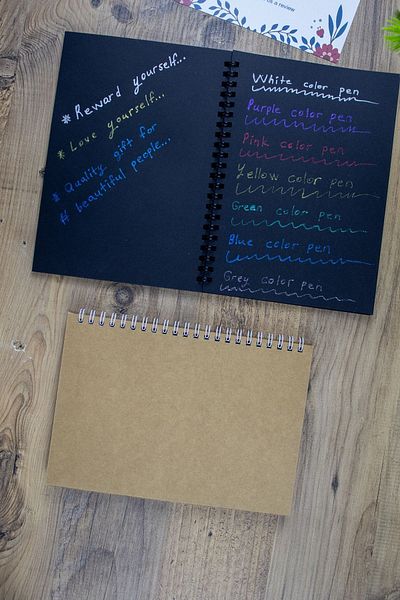 us a review
* Reward yourself...
* Love yourself...
* Quality gift for
# beautiful people...
White color pen
Purple color pen
Pink color pen
Yellow color pen
Green color pen
Blue color pen
Grey color pen